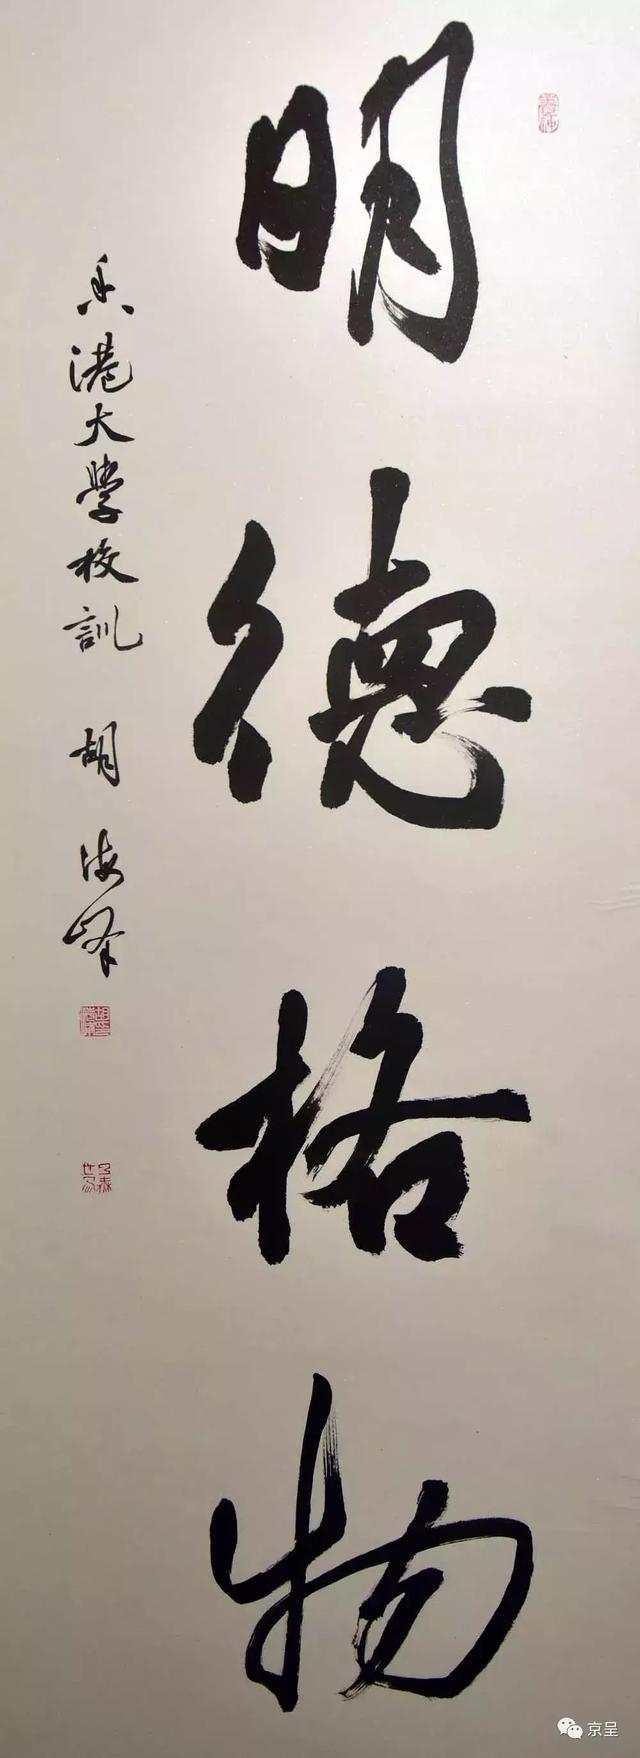 明德格物
香港大學校訓 胡海峰
京呈